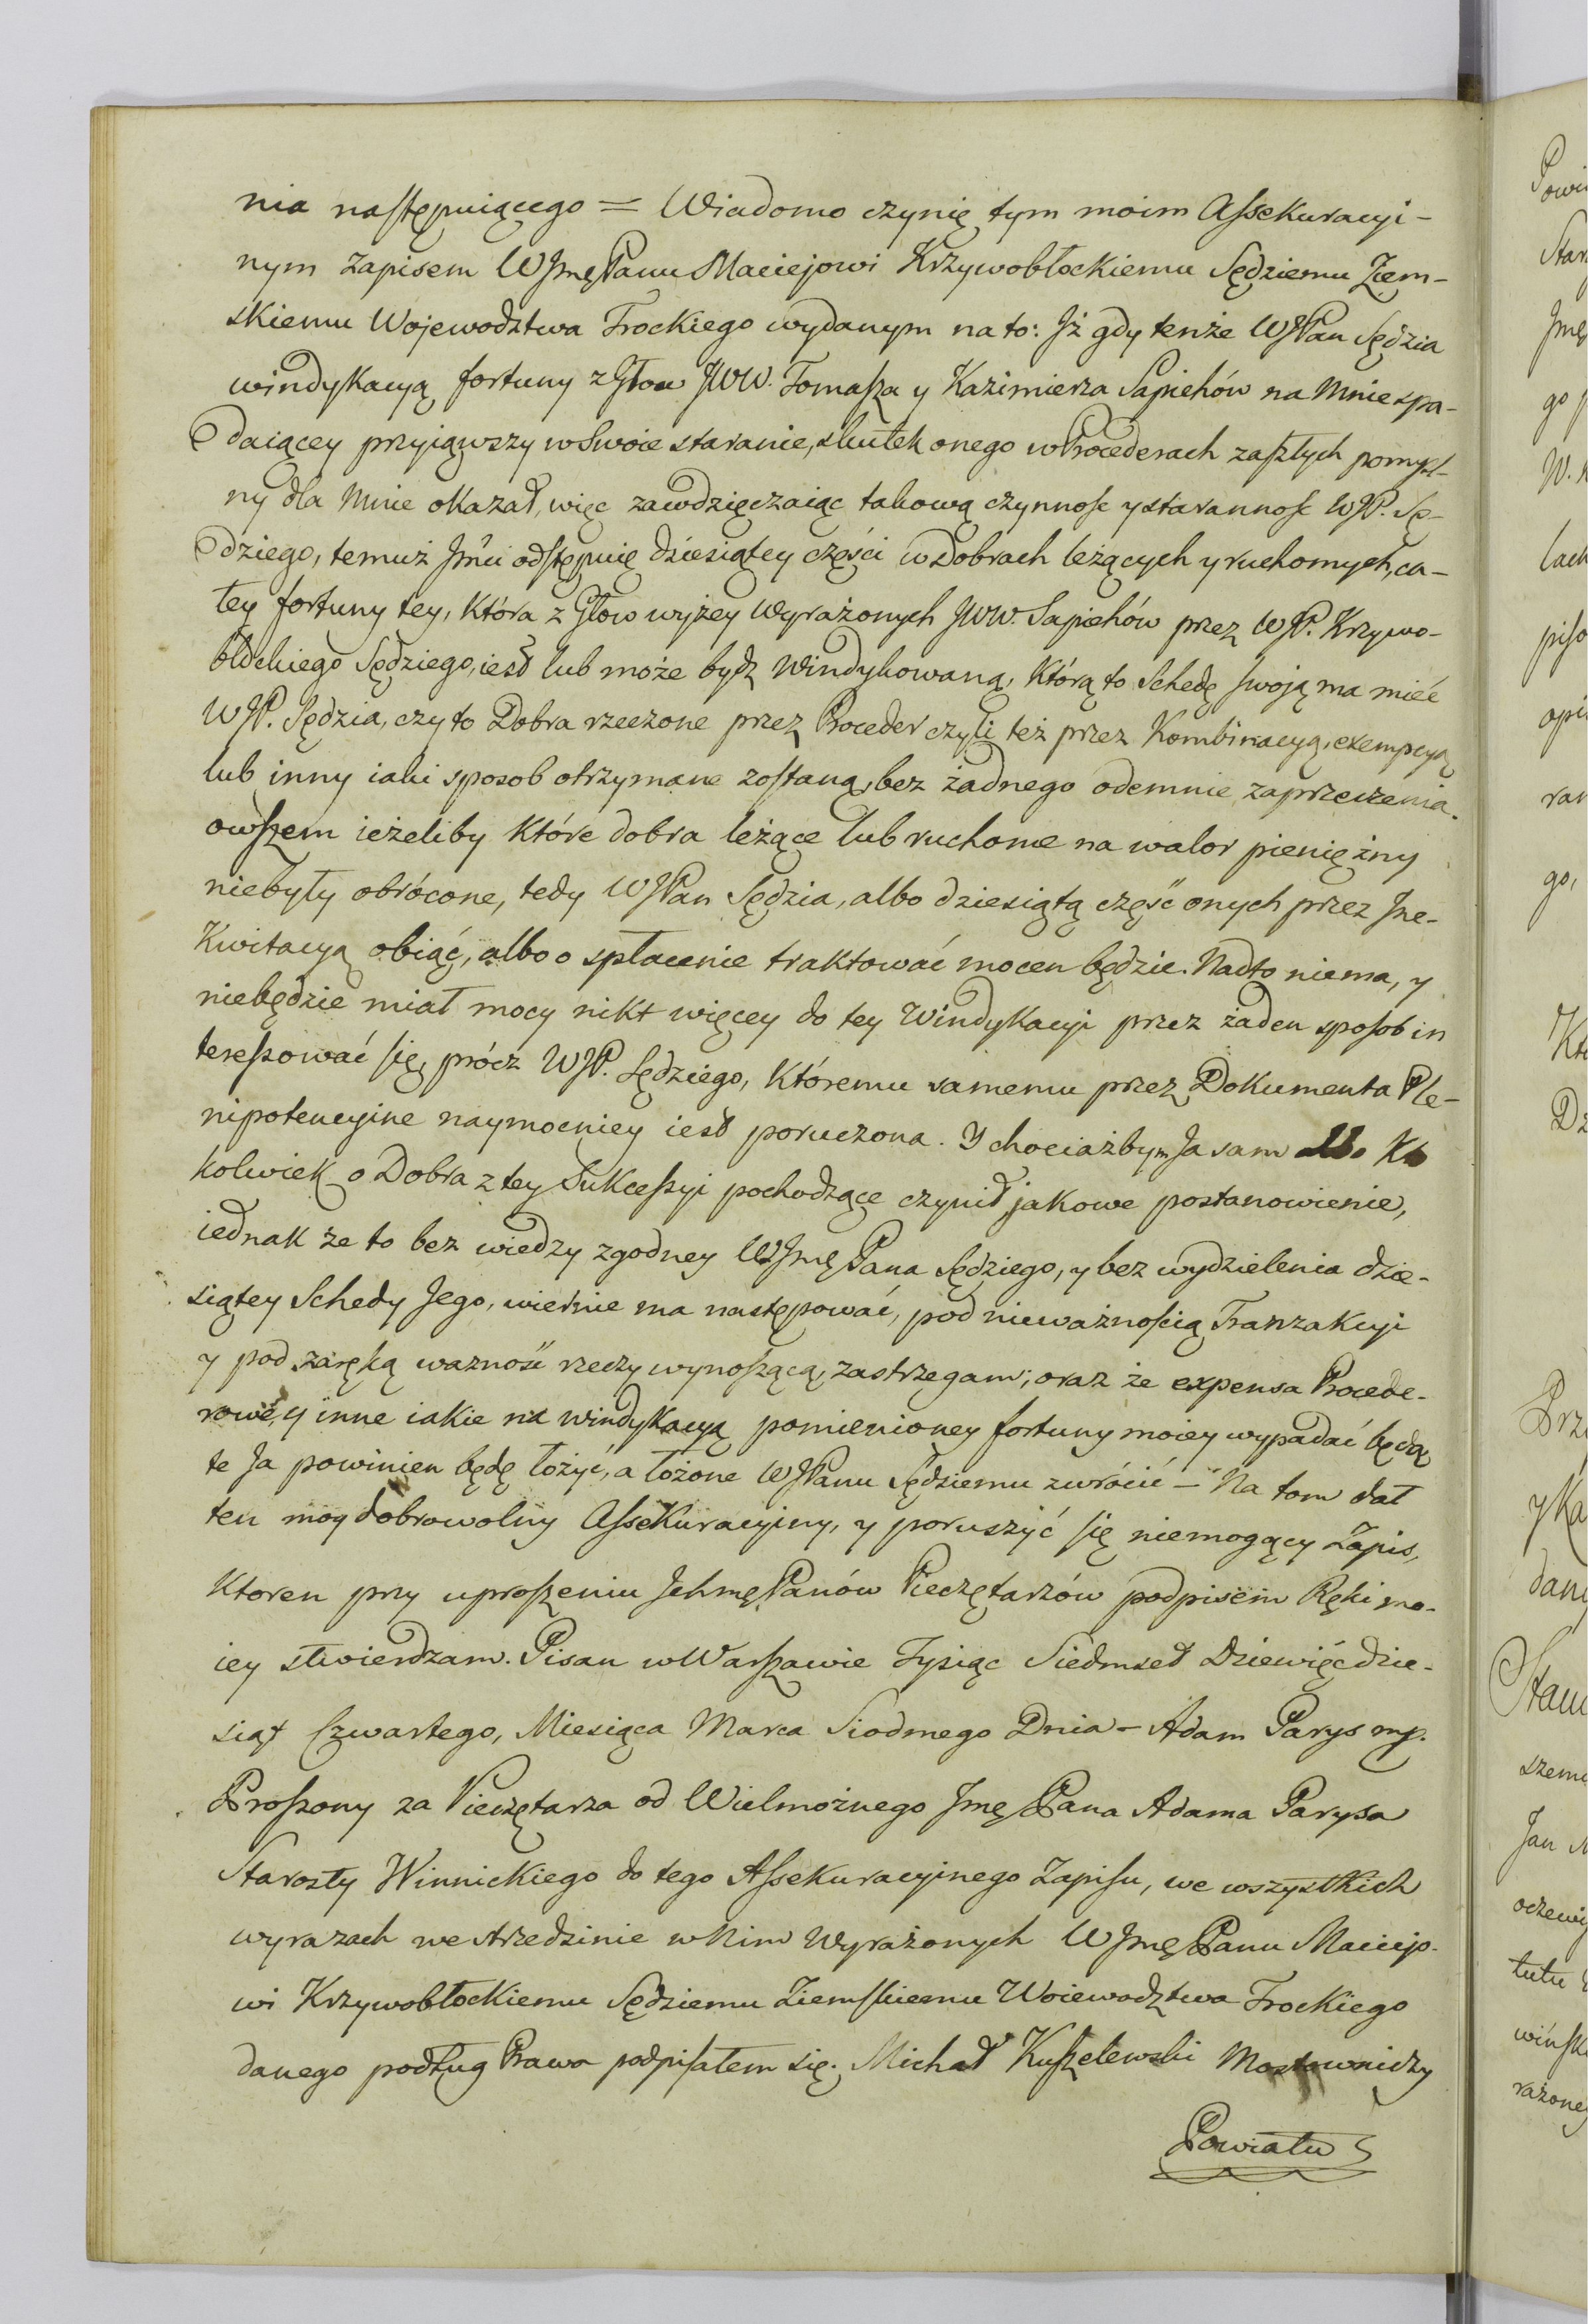 nia następuiącego = Wiadomo czynię tym moim Assekuracyi-
nym zapisem WJmęPanu Maciejowi Krzywobłockiemu Sędziemu Ziem-
skiemu Województwa Trockiego wydanym na to: Jż gdy tenże WJPan Sędzia
windykacyą fortuny z Głow JWW. Tomasza y Kazimierza Sapiehów na Mnie spa-
daiącey przyiąwszy w Swoie staranie, skutek onego w Procederach zaszłych pomyśl-
ny dla Mnie okazał, więc zawdzięczaiąc takową czynnosc y starannosc WJP. Sę-
dziego, temuż Jmći odstępuię dziesiątey części w Dobrach leżących y ruchomych, ca-
łey fortuny tey, która z Głow wyżey wyrażonych JWW. Sapiehów przez WJP. Krzywo-
błockiego Sędziego, iest lub może bydz windykowaną, Którą to Schedę swoją ma mieć
WJP. Sędzia, czy to Dobra rzeczone przez Proceder czyli też przez Kombinacyą, exempcyą
lub inny iaki sposob otrzymane zostaną, bez żadnego odemnie zaprzeczenia.
owszem ieżeliby które dobra leżące lub ruchome na walor pieniężny
niebyły obrócone, tedy WJPan Sędzia, albo dziesiątą część onych przez Jne-
Kwitacyą obiąć, albo o spłacenie traktować mocen będzie. Nadto niema, y
niebędzie miał mocy nikt więcey do tey Windykacyi przez żaden sposob in
teressować się, prócz WJP. Sędziego, któremu samemu przez Dokumenta Ple-
nipotencyine naymocniey iest poruczona. Y chociażbym Ja sam
kolwiek o Dobra z tey Sukcessyi pochodzące czynił jakowe postanowienie,
iednak że to bez wiedzy zgodney WJmę Pana Sędziego, y bez wydzielenia dzie-
siątey Schedy Jego, nie ma następować, pod nieważnością Tranzakcyi
y pod zaręką waznosć rzeczy wynoszącą, zastrzegam; oraz że expensa Procede-
rowe, y inne iakie na windykacyą pomienioney fortuny moiey wypadać będą,
te Ja powinien będę łożyć, a łożone WJPanu Sędziemu zwrócić – Na tom dał
ten moy dobrowolny Assekuracyiny, y poruszyć się niemogący Zapis,
Ktoren przy uproszeniu Jchmę Panów Pieczętarzów podpisem Ręki mo-
iey stwierdzam. Pisan w Warszawie Tysiąc Siedmset Dziewięćdzie-
siąt Czwartego, Miesiąca Marca Siodmego Dnia – Adam Parys mp.
Proszony za Pieczętarza od Wielmożnego Jmę Pana Adama Parysa
Starosty Winnickiego do tego Assekuracyinego Zapisu, we wszystkich
wyrazach we strzedzinie w Nim wyrażonych WJmę Panu Maciejo-
wi Krzywobłockiemu Sędziemu Ziemskiemu Woiewodztwa Trockiego
danego podług Prawa podpisałem się. Michał Kuszelewski Mostowniczy
Powiatu